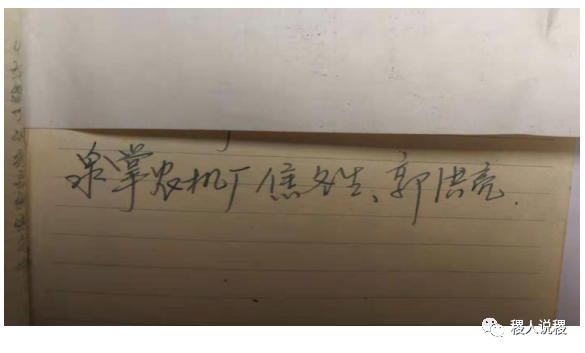 泉掌农机厂焦多生、郭洪亮.
稷人说稷